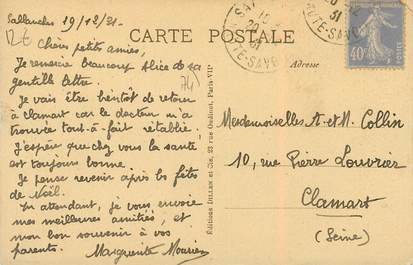 Sallanches 19/12/31.
12€
CARTE POSTALE
Chères petites amies,
Je remercie beaucoup Alice de sa
gentille lettre.
(74)
Je vais être bientôt de retour
à Clamart car le docteur m'a
trouvée tout-à-fait rétablie.
J'espère que chez vous la santé
est toujours bonne.
Je pense revenir après les fêtes
de Noël.
En attendant, je vous envoie
mes meilleures amitiés, et
mon bon souvenir à vos
parents.
Marguerite
Éditions DILLEN et Cie, 23, rue Oudinot, Paris-VIIe
Adresse
Mesdemoiselles A. et M. Collin
10, rue Pierre Louvrier
Clamart
(Seine)
40c
31
HAUTE-SAVOIE